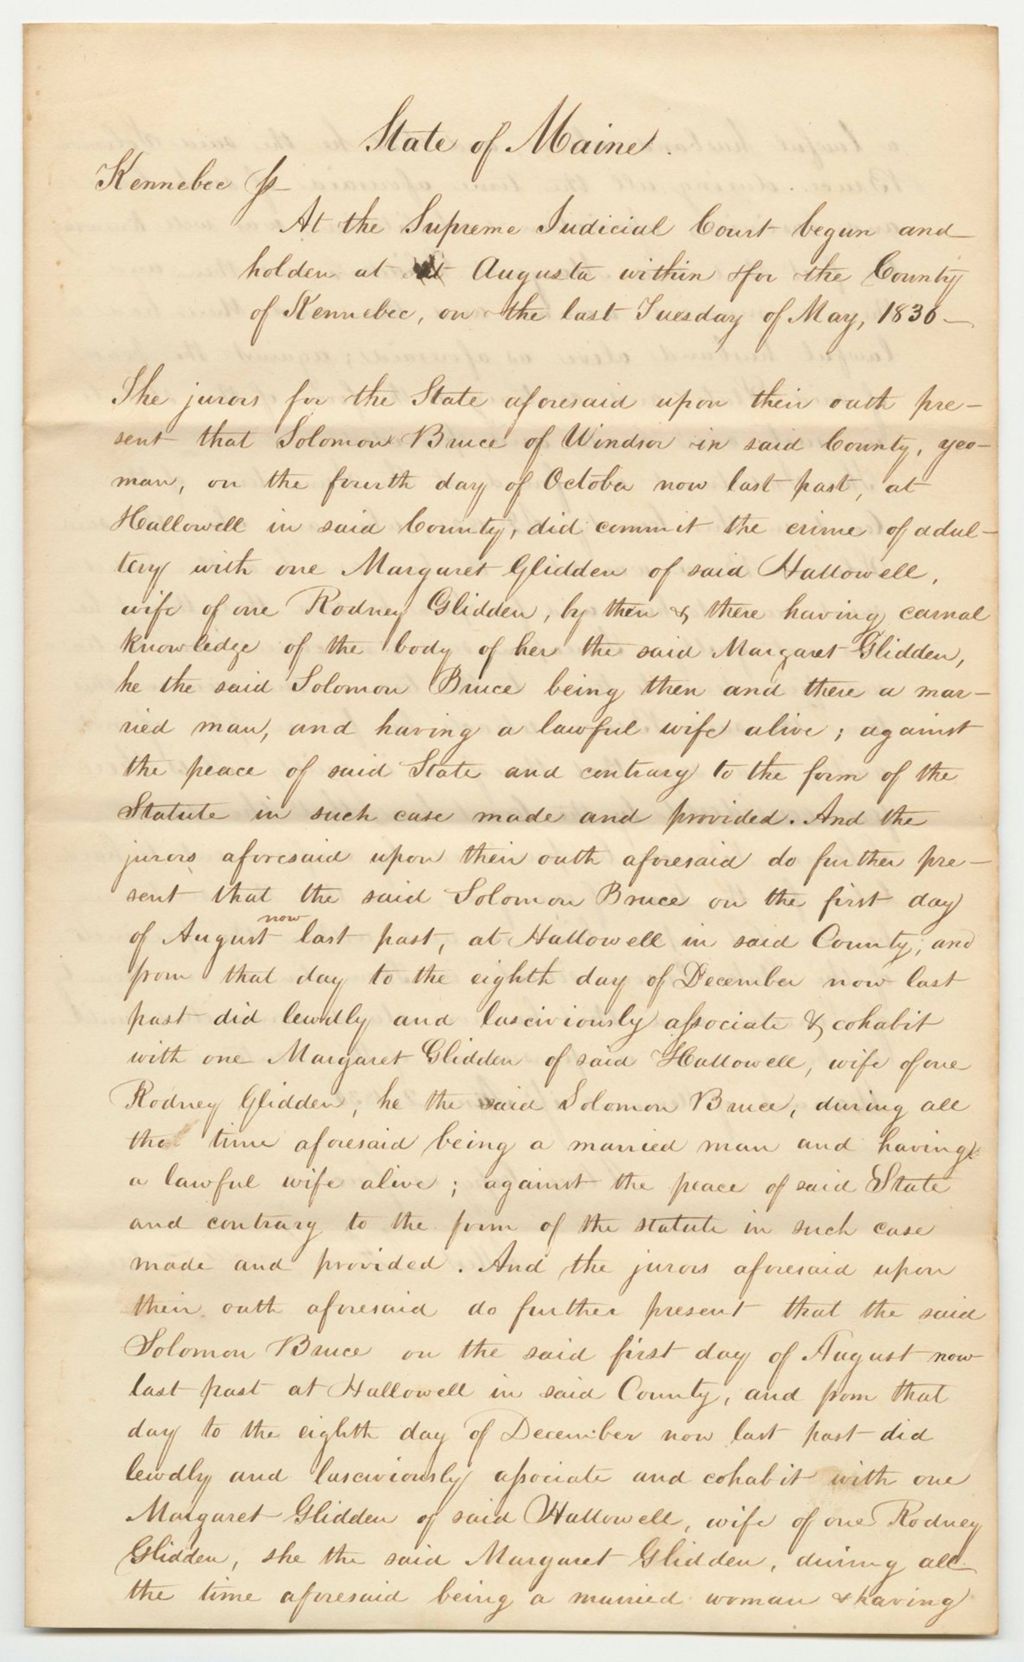 State of Maine.
Kennebec ss
At the Supreme Judicial Court begun and
holden at Augusta within & for the County
of Kennebec, on the last Tuesday of May, 1836
The jurors for the State aforesaid upon their oath pre-
sent that Solomon Bruce of Windsor in said County, yeo-
man, on the fourth day of October now last past, at
Hallowell in said County, did commit the crime of adul-
tery with one Margaret Glidden of said Hallowell,
wife of one Rodney Glidden, by then & there having carnal
knowledge of the body of her the said Margaret Glidden,
he the said Solomon Bruce being then and there a mar-
ried man, and having a lawful wife alive; against
the peace of said State and contrary to the form of the
Statute in such case made and provided. And the
jurors aforesaid upon their oath aforesaid do further pre-
sent that the said Solomon Bruce on the first day
of August now last past, at Hallowell in said County, and
from that day to the eighth day of December now last
past did lewdly and lasciviously associate & cohabit
with one Margaret Glidden of said Hallowell, wife of one
Rodney Glidden, he the said Solomon Bruce, during all
the time aforesaid being a married man and having
a lawful wife alive; against the peace of said State
and contrary to the form of the statute in such case
made and provided. And the jurors aforesaid upon
their oath aforesaid do further present that the said
Solomon Bruce on the said first day of August now
last past at Hallowell in said County, and from that
day to the eighth day of December now last past did
lewdly and lasciviously associate and cohabit with one
Margaret Glidden of said Hallowell, wife of one Rodney
Glidden, she the said Margaret Glidden, during all
the time aforesaid being a married woman & having